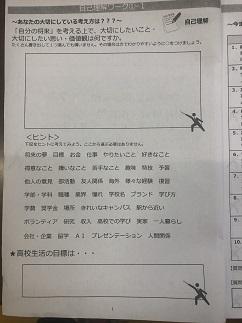 自己理解ワーク①-1
~あなたの大切にしている考え方は???~
自己理解
「自分の将来」を考える上で、大切にしたいこと・
大切にしたい思い・価値観は何ですか。
<ヒント>
将来の夢 目標 お金 仕事 やりたいこと 好きなこと
得意なこと 嫌いなこと 苦手なこと 趣味 特技 予習
他人の意見 部活動 友人関係 海外 様々な経験 復習
学部・学科 職種 業界 憧れ 学校名 ブランド 学び方
学費 奨学金 場所 きれいなキャンパス 駅から近い
ボランティア 研究 収入 高校での学び 実家 一人暮らし
会社・企業 留学 AI プレゼンテーション 人間関係
★高校生活の目標は・・・
1